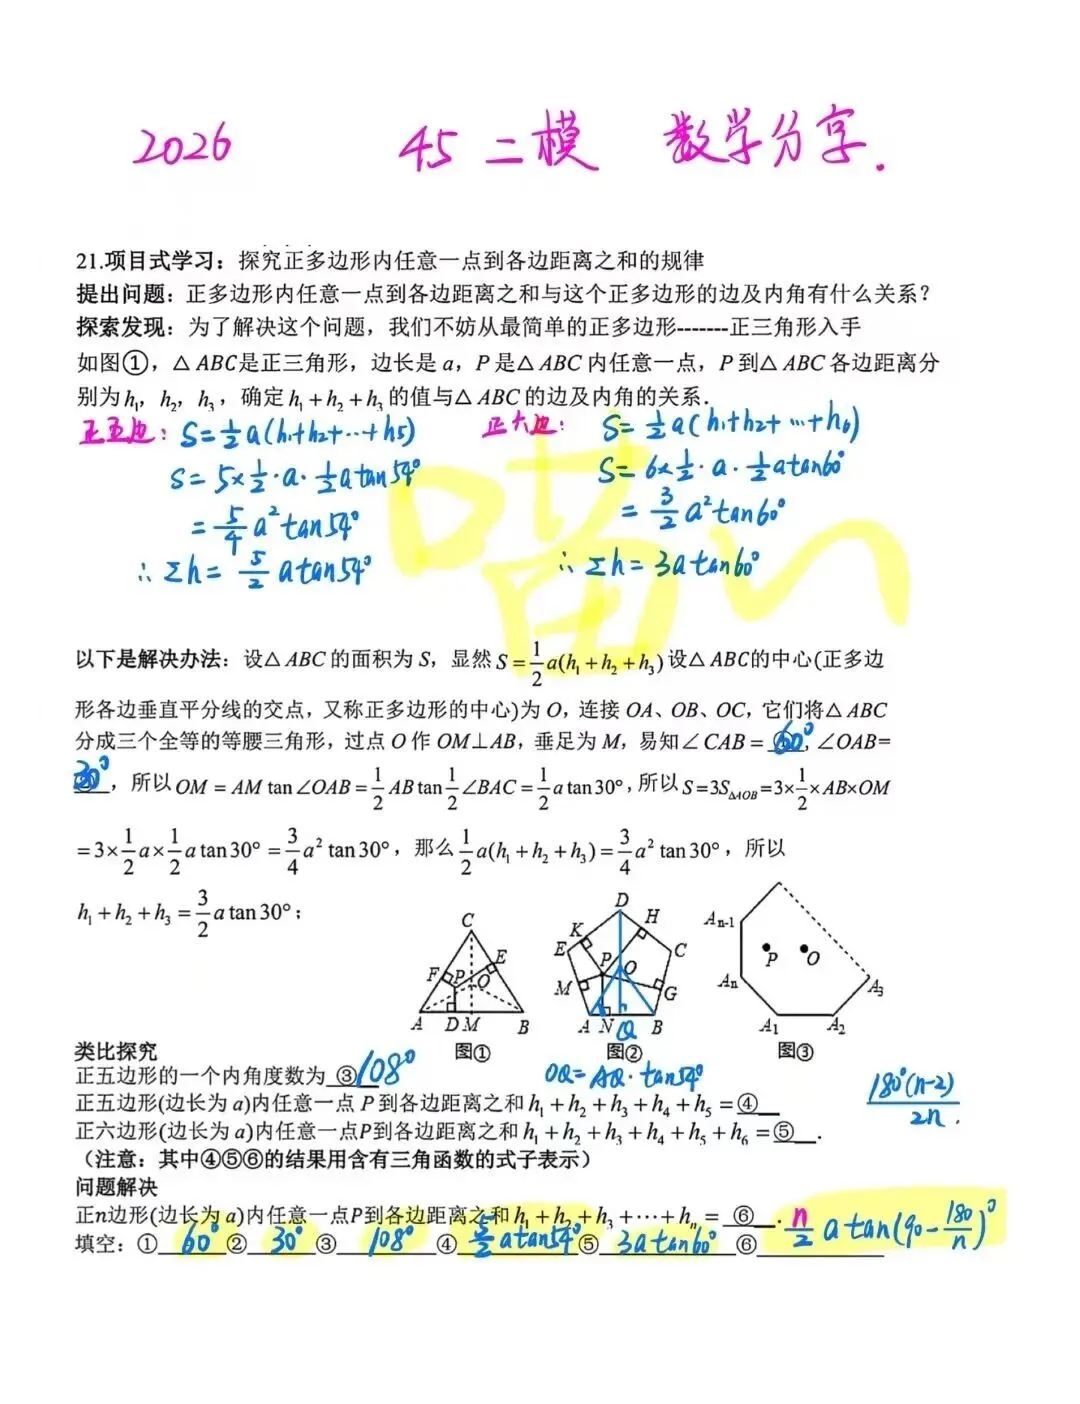 2026 45 二模 数学分享.
21.项目式学习：探究正多边形内任意一点到各边距离之和的规律
提出问题：正多边形内任意一点到各边距离之和与这个正多边形的边及内角有什么关系？
探索发现：为了解决这个问题，我们不妨从最简单的正多边形-------正三角形入手
如图①，△ABC是正三角形，边长是 a，P 是△ABC 内任意一点，P 到△ABC 各边距离分
别为h₁，h₂，h₃，确定 h₁+h₂+h₃ 的值与△ABC 的边及内角的关系.
正五边：S=½a(h₁+h₂+…+h5)
S=5×½·a·½a tan54°
=5/4 a² tan54°
∴Σh=5/2 a tan54°
正六边：S=½a(h₁+h₂+…+h6)
S=6×½·a·½a tan60°
=3/2 a² tan60°
∴Σh=3a tan60°
喵
以下是解决办法：设△ABC 的面积为 S，显然 S=1/2 a(h₁+h₂+h₃) 设△ABC的中心(正多边
形各边垂直平分线的交点，又称正多边形的中心)为 O，连接 OA、OB、OC，它们将△ABC
分成三个全等的等腰三角形，过点 O 作 OM⊥AB，垂足为 M，易知∠CAB= 60°，∠OAB=
30°，所以 OM = AM tan∠OAB=1/2 AB tan 1/2∠BAC=1/2 a tan30°，所以 S=3S△AOB=3×1/2×AB×OM
=3×1/2 a×1/2 a tan30°=3/4 a² tan30°，那么 1/2 a(h₁+h₂+h₃)=3/4 a² tan30°，所以
h₁+h₂+h₃=3/2 a tan30°；
C
F
P
E
O
A
D
M
B
图①
D
K
H
E
P
O
C
M
G
A
N
Q
B
图②
Aₙ₋₁
P
O
Aₙ
A₃
A₁
A₂
图③
类比探究
正五边形的一个内角度数为 ③ 108°
OQ=AQ·tan54°
180°(n-2)/2n.
正五边形(边长为 a)内任意一点 P 到各边距离之和 h₁+h₂+h₃+h₄+h₅=④
正六边形(边长为 a)内任意一点P到各边距离之和 h₁+h₂+h₃+h₄+h₅+h₆=⑤.
（注意：其中④⑤⑥的结果用含有三角函数的式子表示）
问题解决
正n边形(边长为 a)内任意一点P到各边距离之和 h₁+h₂+h₃+⋯+hₙ= ⑥.
填空：① 60° ② 30° ③ 108° ④ 5/2 a tan54° ⑤ 3a tan60° ⑥ n/2 a tan(90-180/n)°